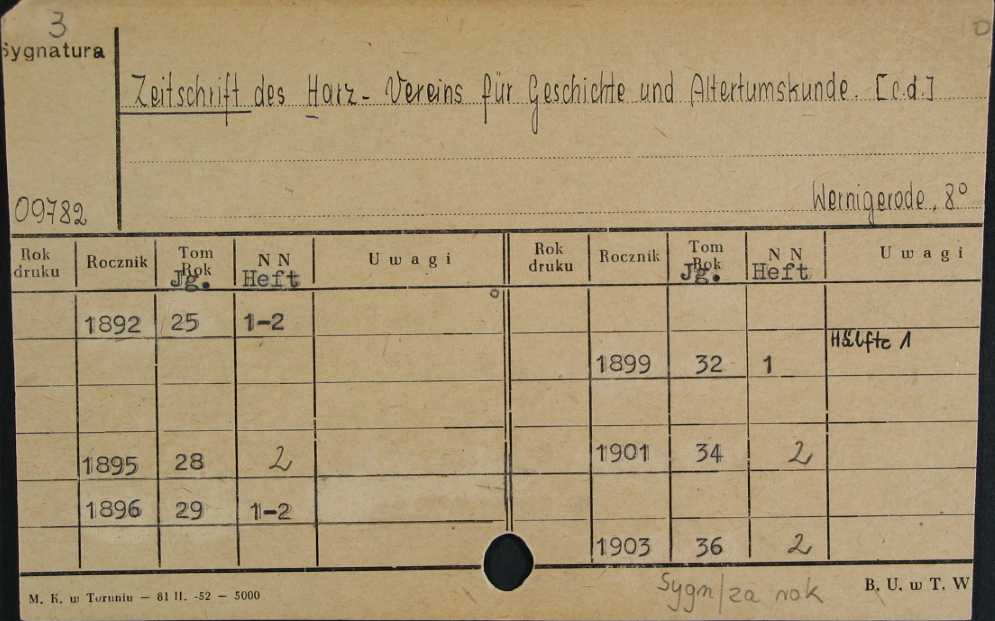 3
Sygnatura
Zeitschrift des Harz-Vereins für Geschichte und Altertumskunde. [c.d.]
09782
Wernigerode, 8°
Rok druku Rocznik Tom Rok Jg. N N Heft Uwagi Rok druku Rocznik Tom Rok Jg. N N Heft Uwagi
1892 25 1-2
1899 32 1 Hälfte 1
1895 28 2 1901 34 2
1896 29 1-2
1903 36 2
Sygn/za rok
M. K. w Toruniu — 81 II. -52 — 5000 B. U. w T. W